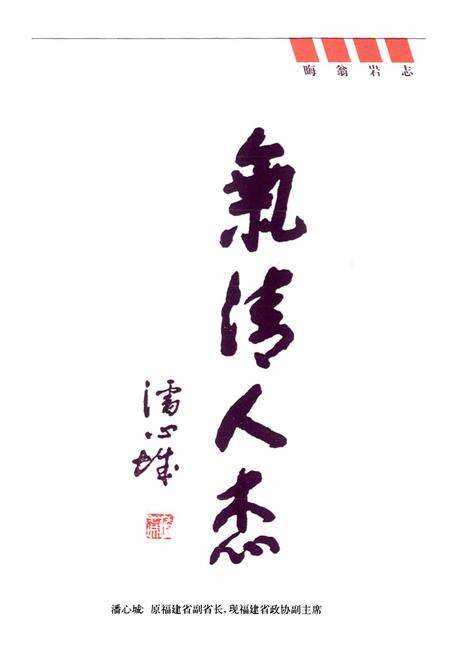 晦翁岩志
氣清人杰
潘心城
潘心城: 原福建省副省长,现福建省政协副主席